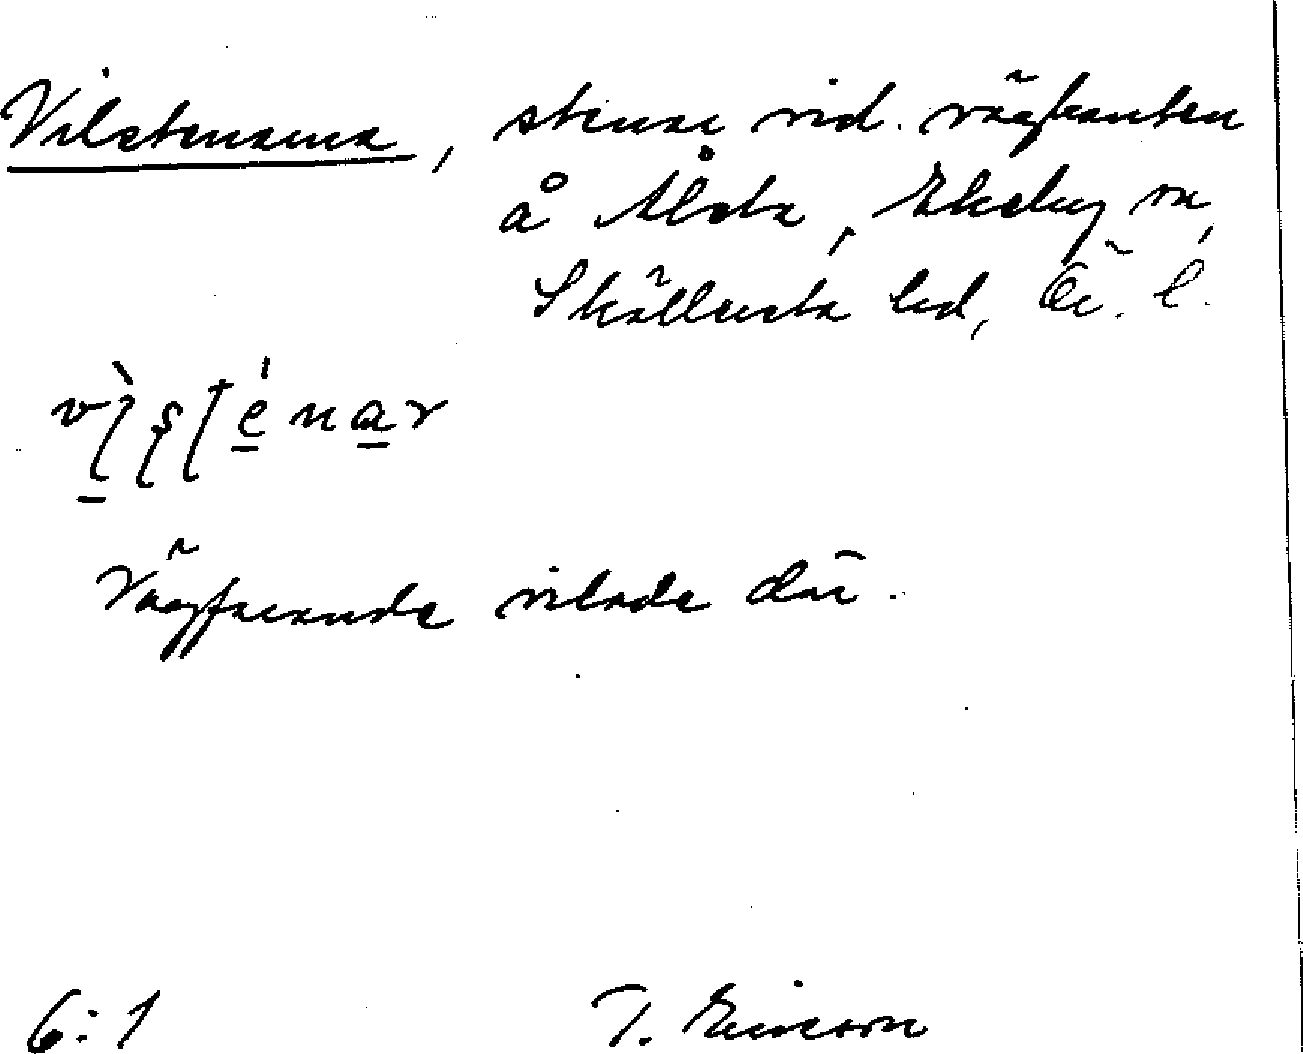 Vilstenarna, stenar vid vägkanten
å Ålsta, Ekeby sn,
Skällersta hd, Ör. l.
Vägfarande vilade där.
6:1 T. Ericson